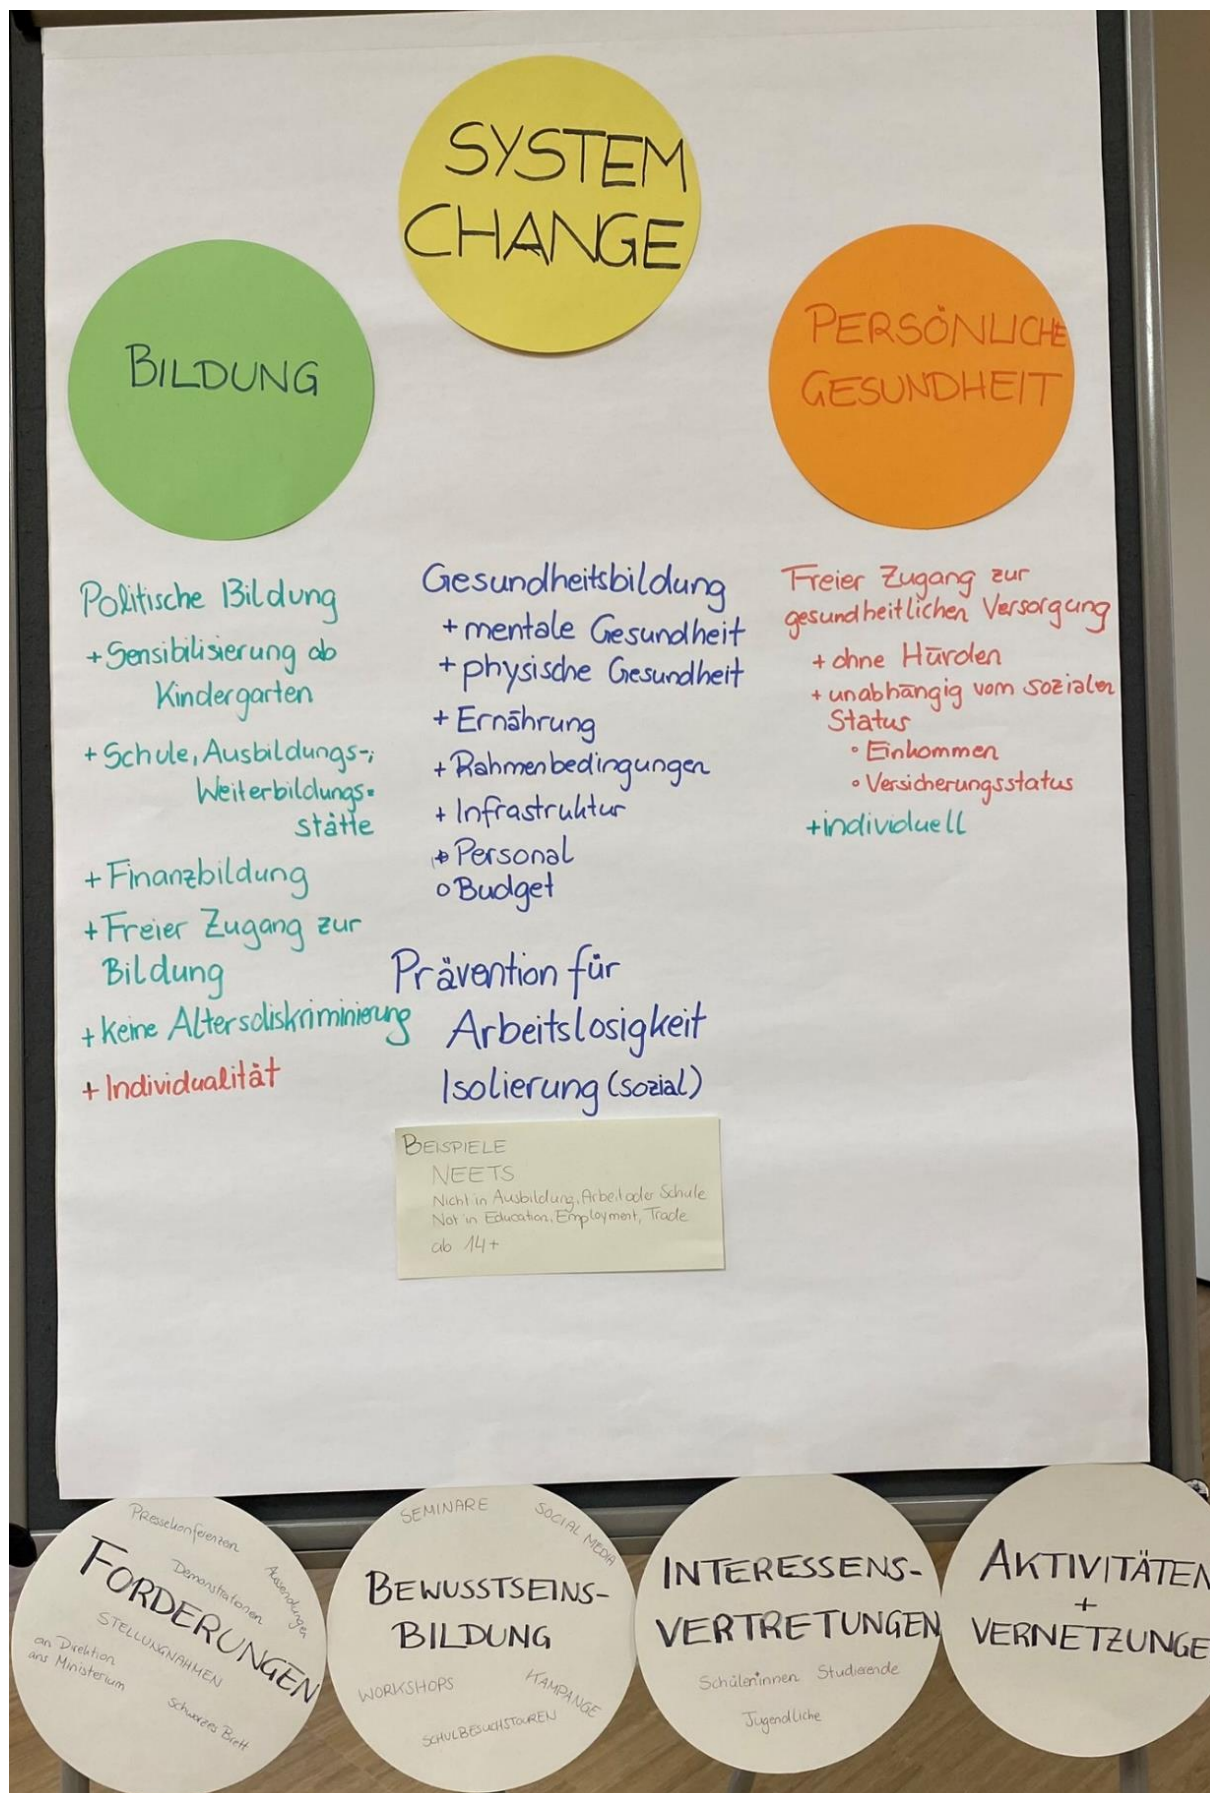 SYSTEM
CHANGE
BILDUNG
PERSÖNLICHE
GESUNDHEIT
Politische Bildung
+ Sensibilisierung ab
Kindergarten
+ Schule, Ausbildungs-,
Weiterbildungs-
stätte
+ Finanzbildung
+ Freier Zugang zur
Bildung
+ Keine Altersdiskriminierung
+ Individualität
Gesundheitsbildung
+ mentale Gesundheit
+ physische Gesundheit
+ Ernährung
+ Rahmenbedingungen
+ Infrastruktur
+ Personal
o Budget
Prävention für
Arbeitslosigkeit
Isolierung (sozial)
BEISPIELE
NEETS
Nicht in Ausbildung, Arbeit oder Schule
Not in Education, Employment, Trade
ab 14+
Freier Zugang zur
gesundheitlichen Versorgung
+ ohne Hürden
+ unabhängig vom sozialen
Status
° Einkommen
° Versicherungsstatus
+ individuell
Pressekonferenzen
Aussendungen
Demonstrationen
FORDERUNGEN
STELLUNGNAHMEN
an Direktion
ans Ministerium
Schwarzes Brett
SEMINARE
SOCIAL MEDIA
BEWUSSTSEINS-
BILDUNG
WORKSHOPS
KAMPANGE
SCHULBESUCHSTOUREN
INTERESSENS-
VERTRETUNGEN
Schüler*innen Studierende
Jugendliche
AKTIVITÄTEN
+
VERNETZUNGE